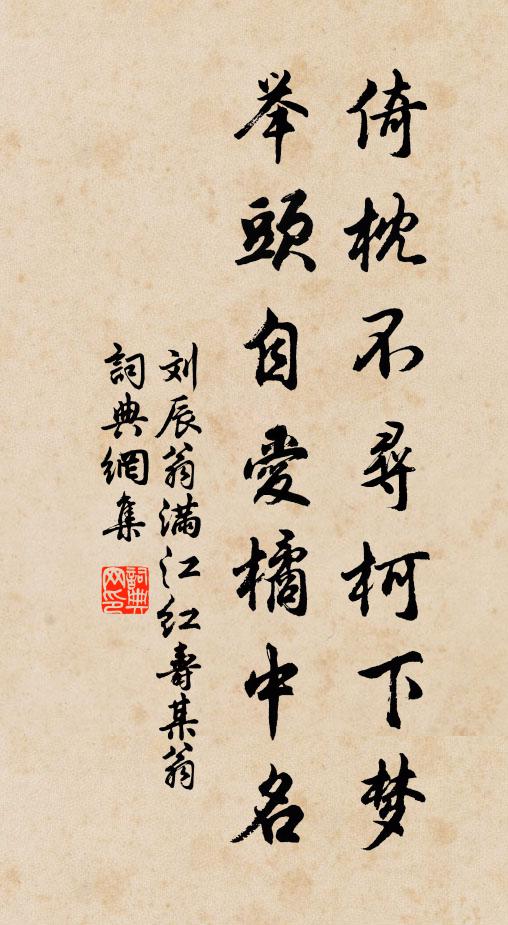 倚枕不尋柯下梦
举頭自愛橘中名
刘辰翁满江红壽某翁
詞典網集
詞典网印